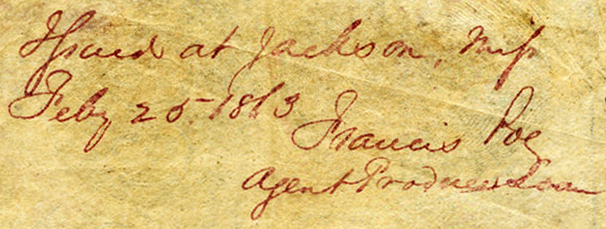 Issued at Jackson, Miss
Feby 25. 1863
Francis Poe
Agent Produce Loan